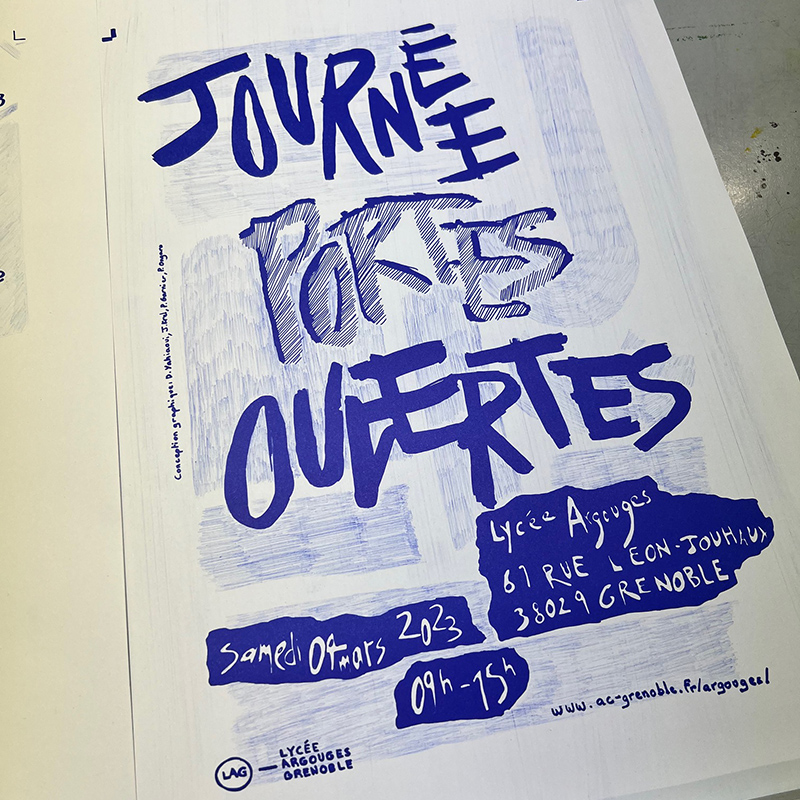 JOURNÉE
PORTES
OUVERTES
Lycée Argouges
61 RUE LEON-JOUHAUX
38029 GRENOBLE
Samedi 04 mars 2023
09h-15h
www.ac-grenoble.fr/argouges/
LAG
LYCÉE
ARGOUGES
GRENOBLE
Conception graphique: